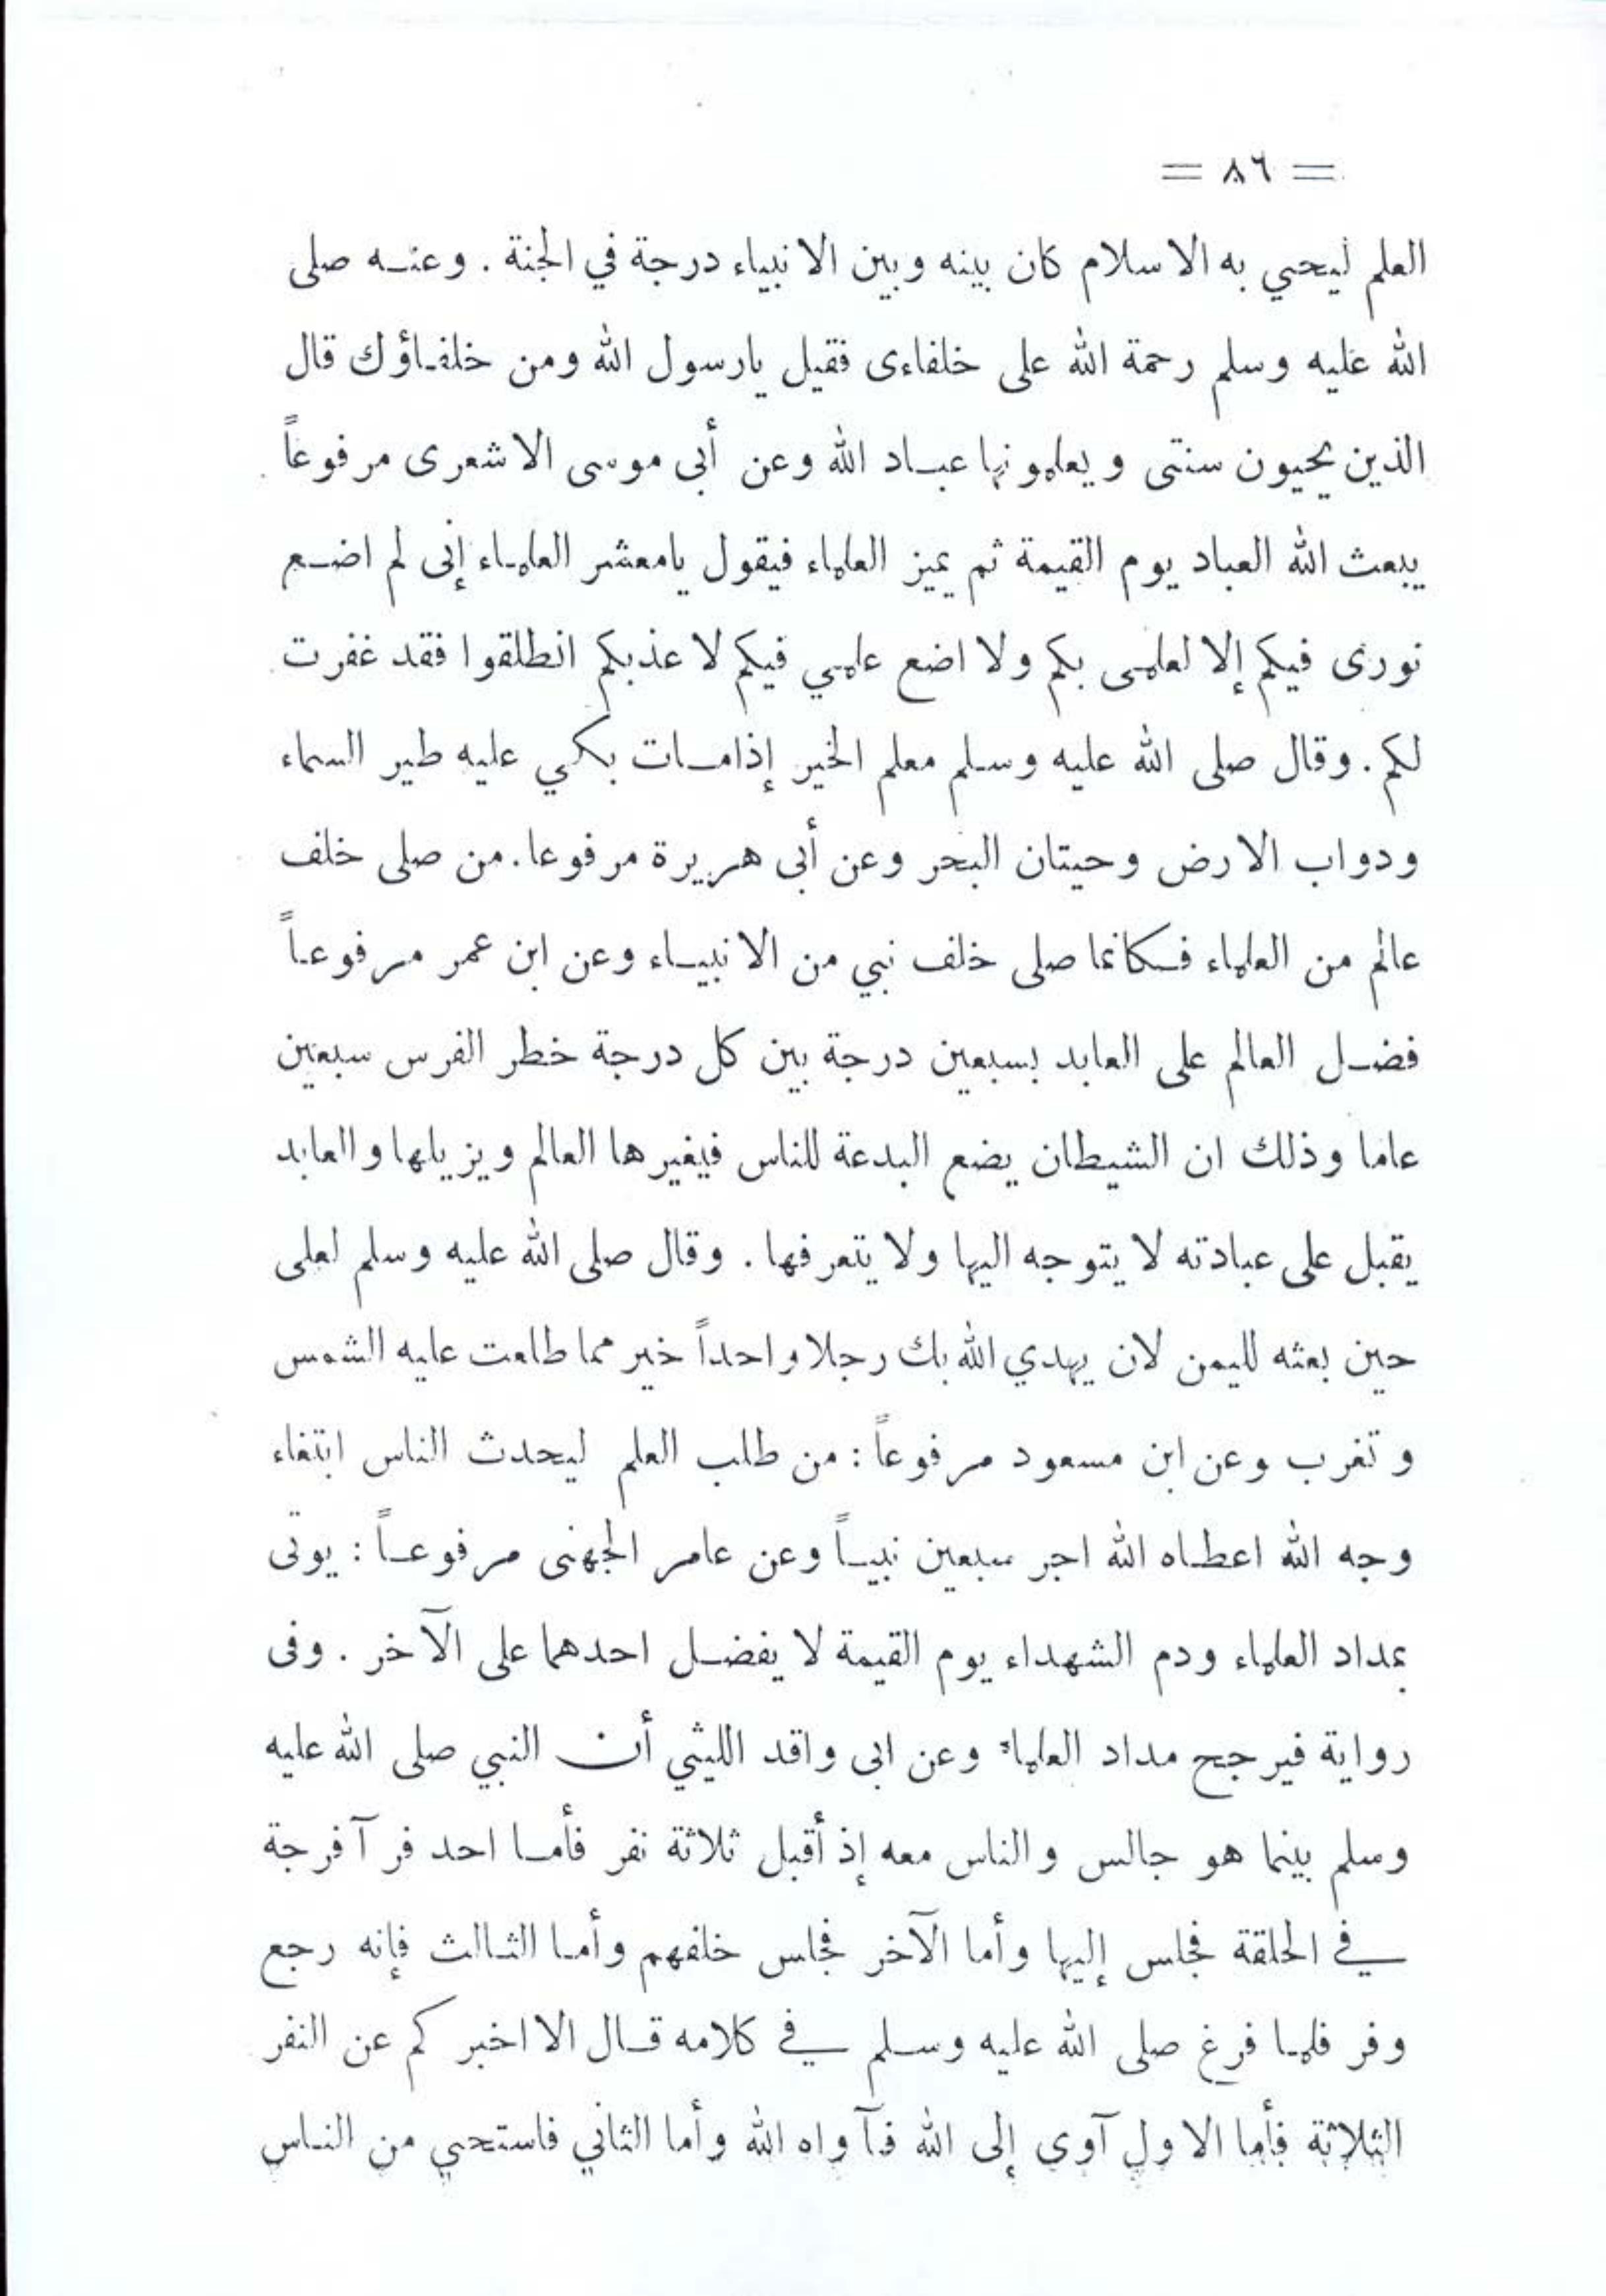 = ٨٦ =
العلم ليحيي به الاسلام كان بينه وبين الانبياء درجة في الجنة . وعنه صلى
الله عليه وسلم رحمة الله على خلفاءى فقيل يارسول الله ومن خلفاؤك قال
الذين يحيون سنتى ويعلمونها عباد الله وعن أبى موسى الاشعرى مرفوعاً
يبعث الله العباد يوم القيمة ثم يميز العلماء فيقول يامعشر العلماء إنى لم اضع
نورى فيكم إلا لعلمى بكم ولا اضع علمي فيكم لاعذبكم انطلقوا فقد غفرت
لكم . وقال صلى الله عليه وسلم معلم الخير إذامات بكي عليه طير السماء
ودواب الارض وحيتان البحر وعن أبى هريرة مرفوعا . من صلى خلف
عالم من العلماء فكانما صلى خلف نبي من الانبياء وعن ابن عمر مرفوعاً
فضل العالم على العابد بسبعين درجة بين كل درجة خطر الفرس سبعين
عاما وذلك ان الشيطان يضع البدعة للناس فيغيرها العالم ويزيلها والعابد
يقبل على عبادته لا يتوجه اليها ولا يتعرفها . وقال صلى الله عليه وسلم لعلى
حين بعثه لليمن لان يهدي الله بك رجلا واحداً خير مما طلعت عليه الشمس
وتغرب وعن ابن مسعود مرفوعاً : من طلب العلم ليحدث الناس ابتغاء
وجه الله اعطاه الله اجر سبعين نبياً وعن عامر الجهنى مرفوعاً : يوتى
بمداد العلماء ودم الشهداء يوم القيمة لا يفضل احدهما على الآخر . وفى
رواية فيرجح مداد العلماء وعن ابى واقد الليثي أن النبي صلى الله عليه
وسلم بينما هو جالس والناس معه إذ أقبل ثلاثة نفر فأما احد فرآ فرجة
في الحلقة فجلس إليها وأما الآخر فجلس خلفهم وأما الثالث فإنه رجع
وفر فلما فرغ صلى الله عليه وسلم في كلامه قال الا اخبركم عن النفر
الثلاثة فأما الاول آوى إلى الله فآواه الله وأما الثاني فاستحي من الناس